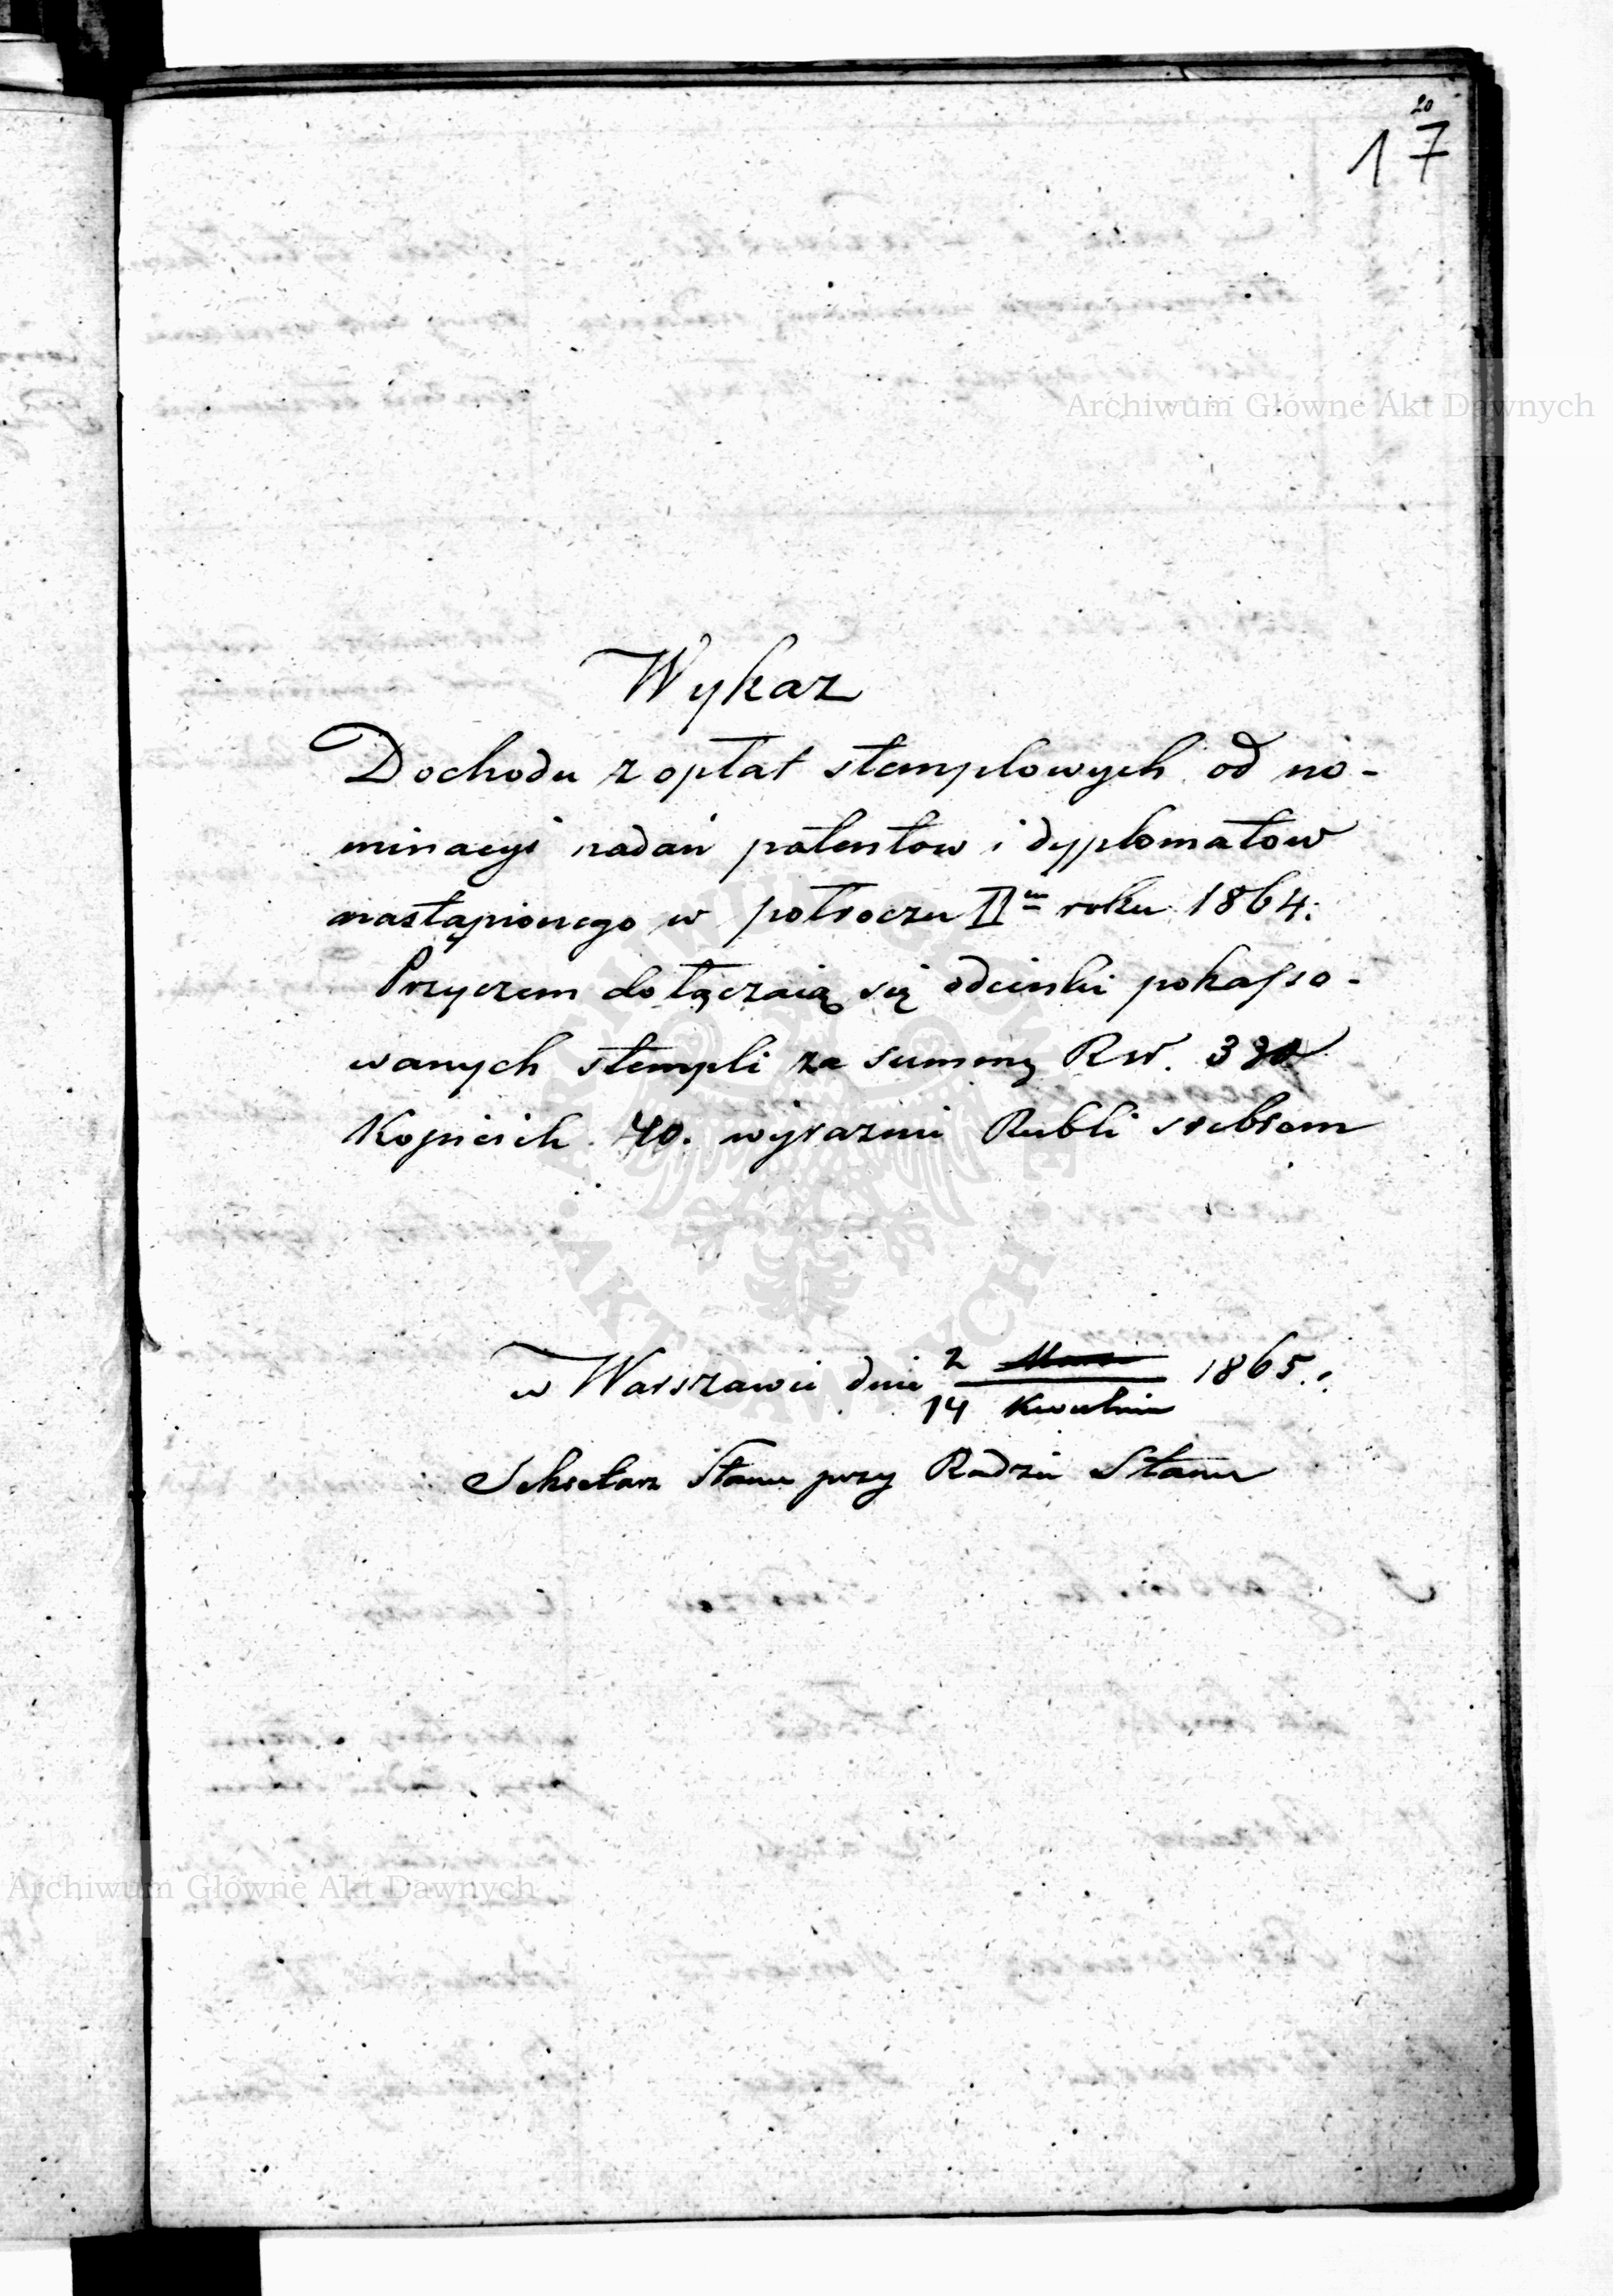 20
17
Archiwum Główne Akt Dawnych
Wykaz
Dochodu z opłat stemplowych od no-
minacyi nadań patentow i dyplomatow
nastąpionego w połroczu II<sup>m</sup> roku 1864.
Przyczem dołączaią się odcinki pokasso-
wanych stempli za summę Rsr.
Kopieiek 40. wyraźnie Rubli srebrem
w Warszawie dnia 2 1865.
14 Kwietnia
Sekretarz Stanu przy Radzie Stanu
ARCHIWUM GŁÓWNE
· AKT DAWNYCH ·
Archiwum Główne Akt Dawnych